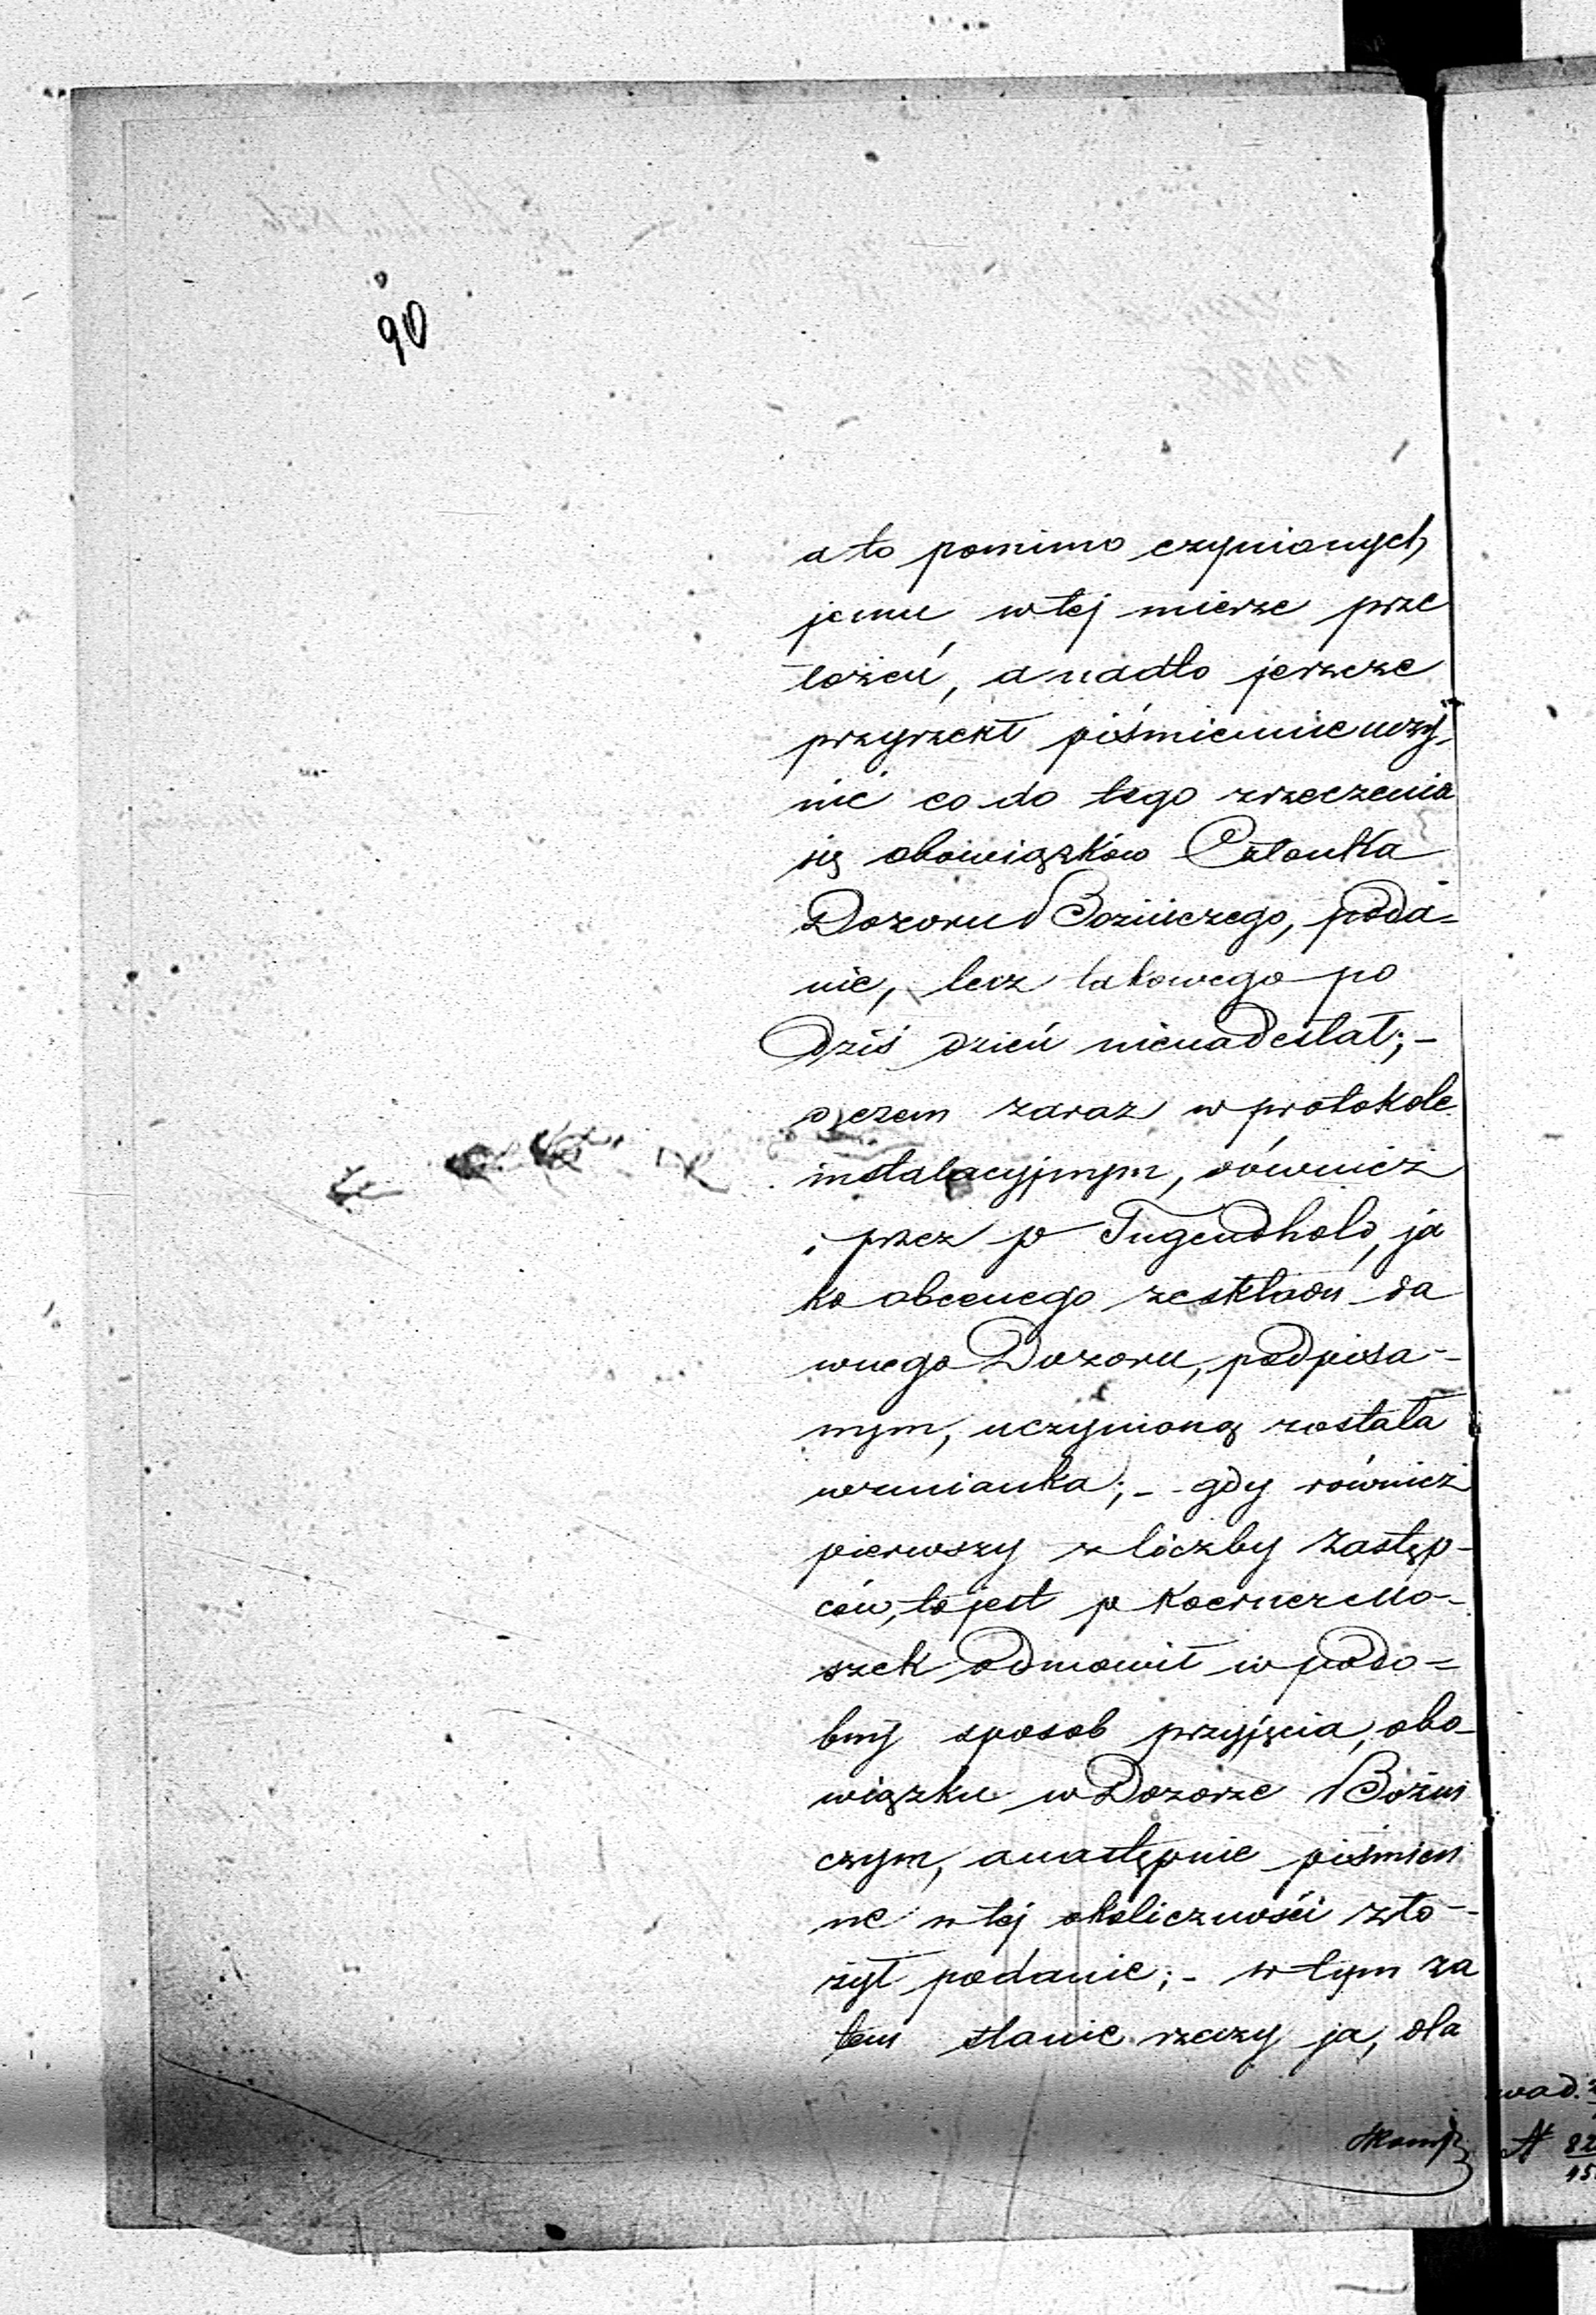 90
a to pomimo czynionych
jemu w tej mierze prze
łożeń, a nadto jeszcze
przyrzekł piśmiennie uczy-
nić co do tego zrzeczenia
się obowiązków Członka
Dozoru Bożniczego, poda=
nie, lecz takowego po
dziś dzień nienadesłał;-
o czem zaraz w protokole
instalacyjnym, również
i przez p Tugendhold, ja
ko obecnego ze składu da
wnego Dozoru, podpisa-
nym, uczynioną została
wzmianka;- gdy również
pierwszy z liczby Zastęp-
ców, to jest p Koerner Mo-
szek odmowił w podo=
bny sposob przyjęcia, obo-
wiązku w Dozorze Bóżni
czym, a następnie piśmien
ne w tej okoliczności zło-
żył podanie;- w tym za
tem stanie rzeczy ja, dla
wad.
N 82
15